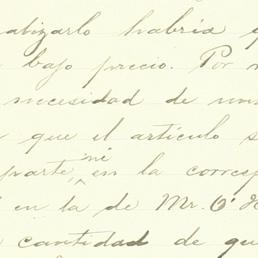 alizarlo habría q
bajo precio. Por
necesidad de un
que el artículo s
parte ni en la corresp
en la de Mr. O'
cantidad de qu